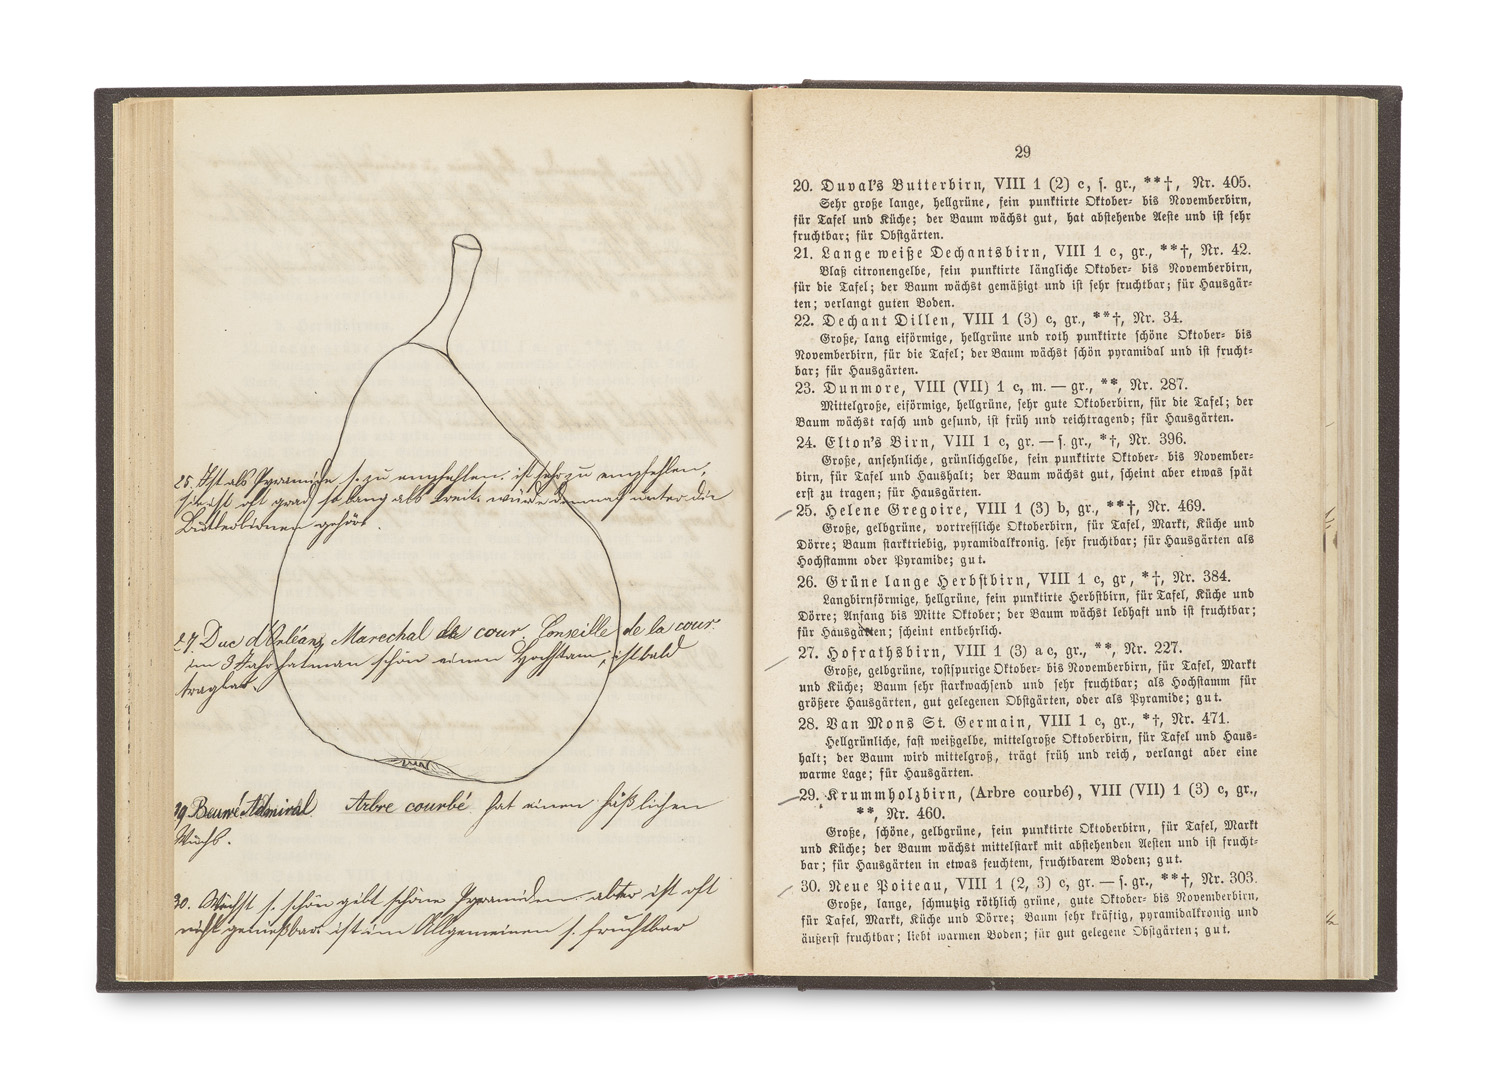 25. Ist als Pyramide s. zu empfehlen. ist sehr zu empfehlen,
sie ist oft grad so lang als breit. würde demnach unter die
Butterbirnen gehör.
27. Duc d'Orléans, Marechal de cour. Conseille de la cour
im 3 Jahr hat man schon einen Hochstam, ist bald
tragbar.
29 Beurré Admiral Arbre courbé hat einen häßlichen
Wuchs.
30. Wächst s. schön gibt schöne Pyramiden aber ist oft
nicht genießbar ist im Allgemeinen s. fruchtbar
29
20. Duval's Butterbirn, VIII 1 (2) c, s. gr., **†, Nr. 405.
Sehr große lange, hellgrüne, fein punktirte Oktober- bis Novemberbirn,
für Tafel und Küche; der Baum wächst gut, hat abstehende Aeste und ist sehr
fruchtbar; für Obstgärten.
21. Lange weiße Dechantsbirn, VIII 1 c, gr., **†, Nr. 42.
Blaß citronengelbe, fein punktirte längliche Oktober- bis Novemberbirn,
für die Tafel; der Baum wächst gemäßigt und ist sehr fruchtbar; für Hausgär-
ten; verlangt guten Boden.
22. Dechant Dillen, VIII 1 (3) c, gr., **†, Nr. 34.
Große, lang eiförmige, hellgrüne und roth punktirte schöne Oktober- bis
Novemberbirn, für die Tafel; der Baum wächst schön pyramidal und ist frucht-
bar; für Hausgärten.
23. Dunmore, VIII (VII) 1 c, m. — gr., **, Nr. 287.
Mittelgroße, eiförmige, hellgrüne, sehr gute Oktoberbirn, für die Tafel; der
Baum wächst rasch und gesund, ist früh und reichtragend; für Hausgärten.
24. Elton's Birn, VIII 1 c, gr. — s. gr., *†, Nr. 396.
Große, ansehnliche, grünlichgelbe, fein punktirte Oktober- bis November-
birn, für Tafel und Haushalt; der Baum wächst gut, scheint aber etwas spät
erst zu tragen; für Hausgärten.
25. Helene Gregoire, VIII 1 (3) b, gr., **†, Nr. 469.
Große, gelbgrüne, vortreffliche Oktoberbirn, für Tafel, Markt, Küche und
Dörre; Baum starktriebig, pyramidalkronig. sehr fruchtbar; für Hausgärten als
Hochstamm oder Pyramide; gut.
26. Grüne lange Herbstbirn, VIII 1 c, gr, *†, Nr. 384.
Langbirnförmige, hellgrüne, fein punktirte Herbstbirn, für Tafel, Küche und
Dörre; Anfang bis Mitte Oktober; der Baum wächst lebhaft und ist fruchtbar;
für Hausgärten; scheint entbehrlich.
27. Hofrathsbirn, VIII 1 (3) a c, gr., **, Nr. 227.
Große, gelbgrüne, rostspurige Oktober- bis Novemberbirn, für Tafel, Markt
und Küche; Baum sehr starkwachsend und sehr fruchtbar; als Hochstamm für
größere Hausgärten, gut gelegenen Obstgärten, oder als Pyramide; gut.
28. Van Mons St. Germain, VIII 1 c, gr., *†, Nr. 471.
Hellgrünliche, fast weißgelbe, mittelgroße Oktoberbirn, für Tafel und Haus-
halt; der Baum wird mittelgroß, trägt früh und reich, verlangt aber eine
warme Lage; für Hausgärten.
29. Krummholzbirn, (Arbre courbé), VIII (VII) 1 (3) c, gr.,
**, Nr. 460.
Große, schöne, gelbgrüne, fein punktirte Oktoberbirn, für Tafel, Markt
und Küche; der Baum wächst mittelstark mit abstehenden Aesten und ist frucht-
bar; für Hausgärten in etwas feuchtem, fruchtbarem Boden; gut.
30. Neue Poiteau, VIII 1 (2, 3) c, gr. — s. gr., **†, Nr. 303.
Große, lange, schmutzig röthlich grüne, gute Oktober- bis Novemberbirn,
für Tafel, Markt, Küche und Dörre; Baum sehr kräftig, pyramidalkronig und
äußerst fruchtbar; liebt warmen Boden; für gut gelegene Obstgärten; gut.